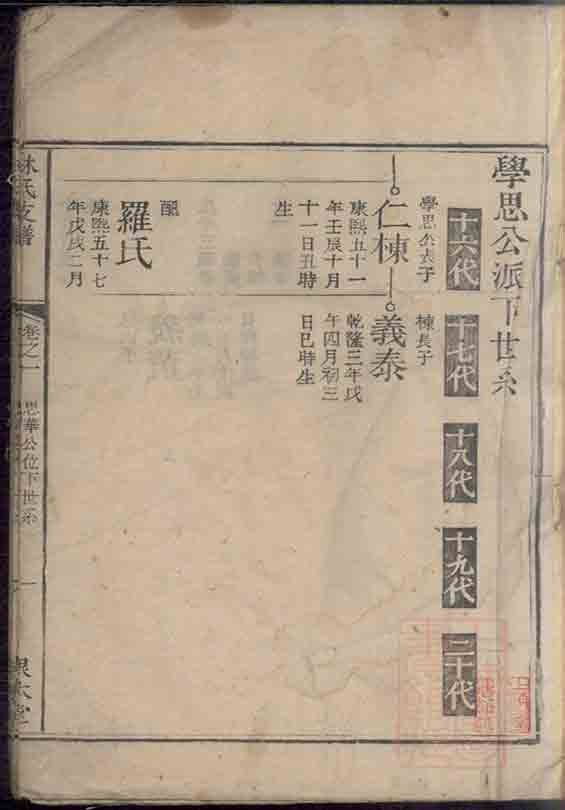 學思公派下世系
十六代
十七代
十八代
十九代
二十代
學思公長子
仁棟
康熙五十一
年壬辰十月
十一日丑時
生
配
羅氏
康熙五十七
年戊戌二月
棟長子
義泰
乾隆三年戊
午四月初三
日巳時生
林氏支譜
卷之一
思華公位下世系
一